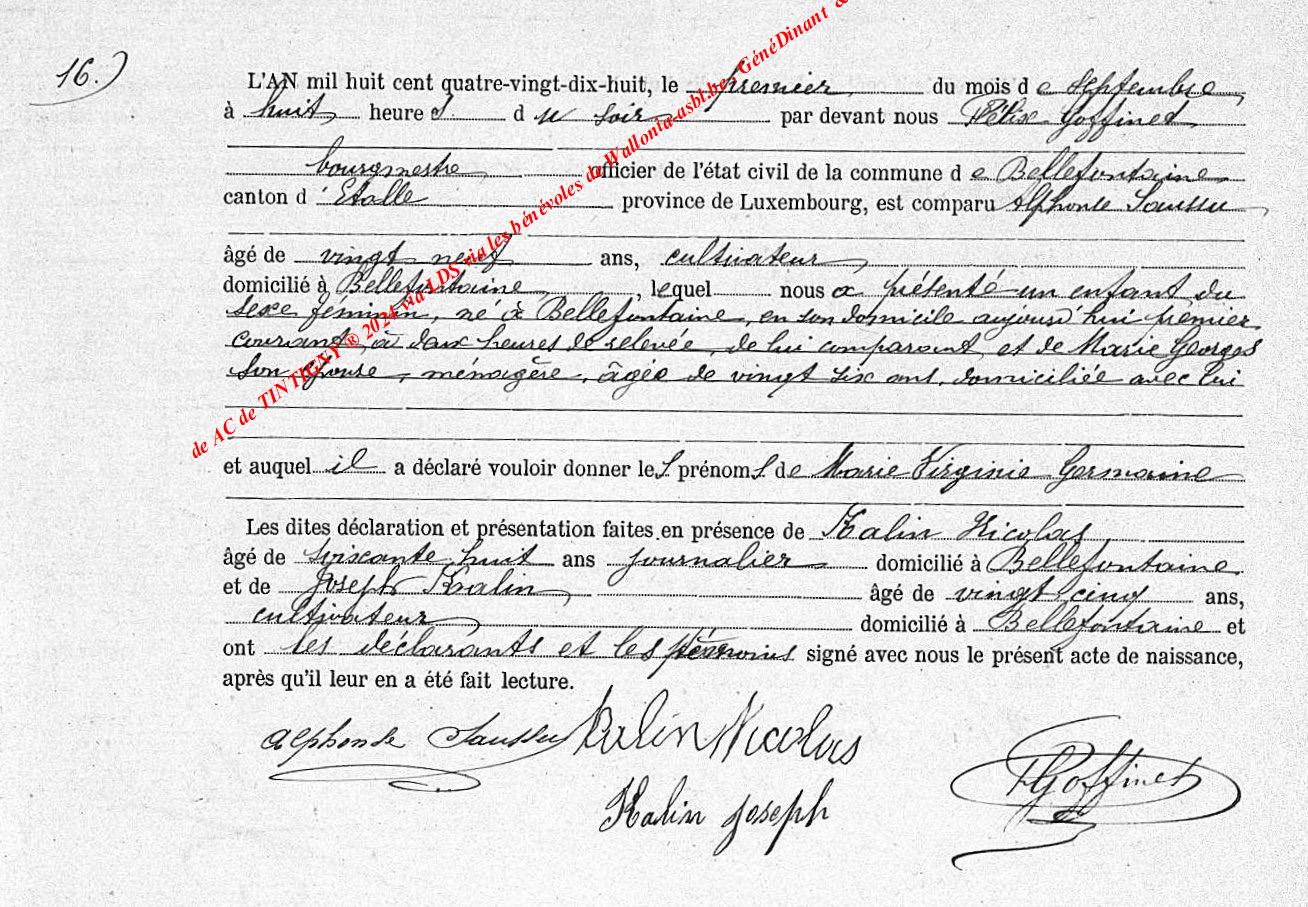 16.)
L'AN mil huit cent quatre-vingt-dix-huit, le premier du mois de Septembre,
à huit heures du soir par devant nous Félix Goffinet
bourgmestre officier de l'état civil de la commune de Bellefontaine
canton d'Etalle province de Luxembourg, est comparu Alphonse Saussu
âgé de vingt neuf ans, cultivateur,
domicilié à Bellefontaine, lequel nous a présenté un enfant du
sexe féminin, né à Bellefontaine, en son domicile aujourd'hui premier
courant, à deux heures de relevée, de lui comparant et de Marie Georges
son épouse, ménagère, âgée de vingt six ans, domiciliée avec lui
et auquel il a déclaré vouloir donner les prénoms de Marie Virginie Germaine
Les dites déclaration et présentation faites en présence de Kalin Nicolas,
âgé de soixante huit ans journalier domicilié à Bellefontaine
et de Joseph Kalin, âgé de vingt cinq ans,
cultivateur, domicilié à Bellefontaine et
ont les déclarants et les témoins signé avec nous le présent acte de naissance,
après qu'il leur en a été fait lecture.
Alphonse Saussu Kalin Nicolas
Kalin Joseph
FGoffinet
de AC de TINTIGNY ® 2024 via LDS via les bénévoles de Wallonia-asbl.be, GénéDinant &